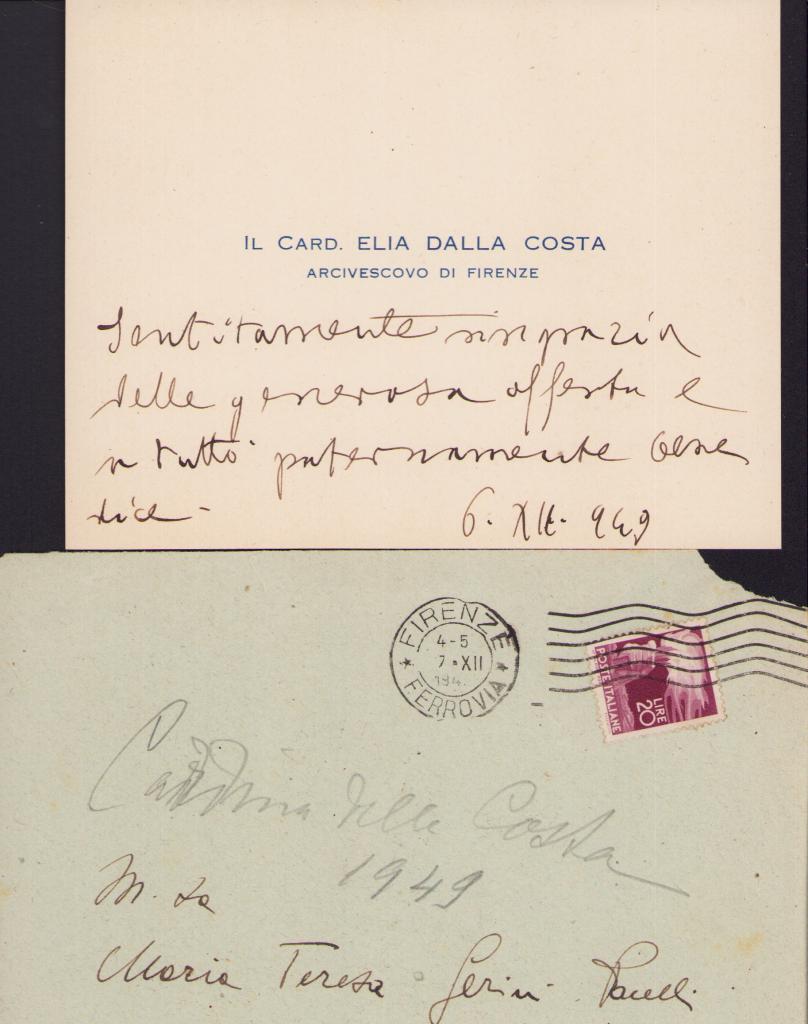 IL CARD. ELIA DALLA COSTA
ARCIVESCOVO DI FIRENZE
Sentitamente ringrazia
della generosa offerta e
a tutto paternamente bene
dice -
6. XII. 949
FIRENZE
4-5
7·XII
194
FERROVIA
POSTE ITALIANE
LIRE
20
della Costa
1949
M. sa
Maria Teresa Gerini Pacelli